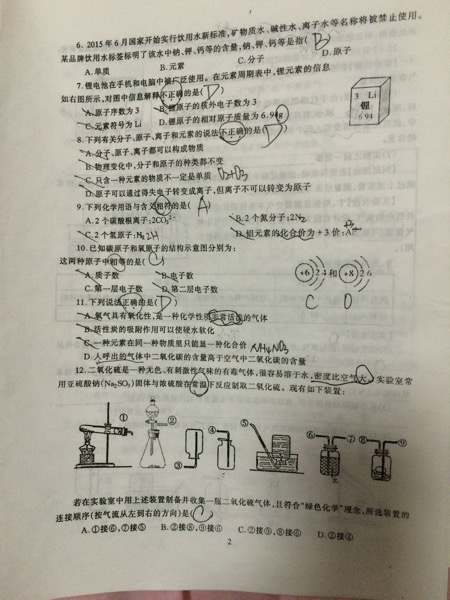 6. 2015年6月国家开始实行饮用水新标准,矿物质水、碱性水、离子水等名称将被禁止使用。
某品牌饮用水标签标明了该水中钠、钾、钙等的含量,钠、钾、钙等是指( B )
A.单质 B.元素 C.分子 D.原子
7.锂电池在手机和电脑中被广泛使用。在元素周期表中,锂元素的信息
如右图所示,对图中信息解释不正确的是( D )
A.原子序数为3 B.锂原子的核外电子数为3
C.元素符号为Li D.锂原子的相对原子质量为6.94g
3 Li
锂
6.94
8.下列有关分子、原子、离子和元素的说法不正确的是( D )
A.分子、原子、离子都可以构成物质
B.物理变化中,分子和原子的种类都不变
C.只含一种元素的物质不一定是单质 O2+O3
D.原子可以通过得失电子转变成离子,但离子不可以转变为原子
9.下列化学用语与含义相符的是( A )
A.2个碳酸根离子:2CO₃²⁻ B.2个氮分子:2N₂
C.2个氢原子:H₂ 2H D.铝元素的化合价为+3价:Al³⁺
10.已知碳原子和氧原子的结构示意图分别为:
+6 2 4 和 +8 2 6
这两种原子中相等的是( C )
A.质子数 B.电子数
C.第一层电子数 D.第二层电子数
C O
11.下列说法正确的是( D )
A.氧气具有氧化性,是一种化学性质非常活泼的气体
B.活性炭的吸附作用可以使硬水软化
C.一种元素在同一种物质里只能显一种化合价 NH4NO3
D.人呼出的气体中二氧化碳的含量高于空气中二氧化碳的含量
12.二氧化硫是一种无色、有刺激性气味的有毒气体,很容易溶于水,密度比空气大。实验室常
用亚硫酸钠(Na₂SO₃)固体与浓硫酸在常温下反应制取二氧化硫。现有如下装置:
① ② ③ ④ ⑤ ⑥ ⑦ ⑧ ⑨
若在实验室中用上述装置制备并收集一瓶二氧化硫气体,且符合“绿色化学”理念,所选装置的
连接顺序(按气流从左到右的方向)是( C )
A.①接⑥,⑦接⑤ B.②接⑧,⑨接⑥ C.②接⑨,⑧接⑥ D.②接④
2